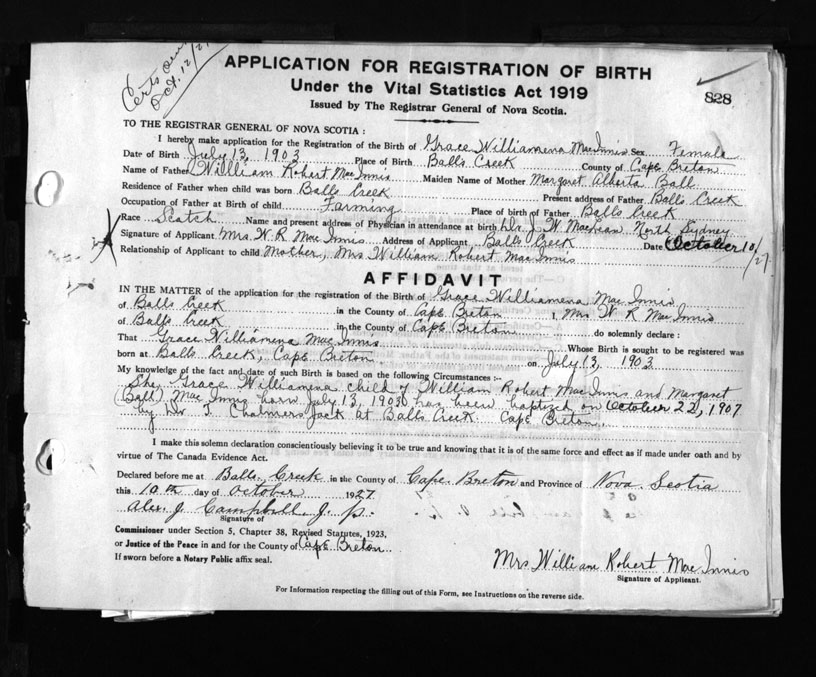 Certs our
Oct. 12/27
APPLICATION FOR REGISTRATION OF BIRTH
828
Under the Vital Statistics Act 1919
Issued by The Registrar General of Nova Scotia.
TO THE REGISTRAR GENERAL OF NOVA SCOTIA :
I hereby make application for the Registration of the Birth of Grace Williamena MacInnis Sex Female
Date of Birth July 13, 1903 Place of Birth Balls Creek County of Cape Breton
Name of Father William Robert MacInnis Maiden Name of Mother Margaret Alberta Ball
Residence of Father when child was born Balls Creek Present address of Father Balls Creek
Occupation of Father at Birth of child Farming Place of birth of Father Balls Creek
Race Scotch Name and present address of Physician in attendance at birth Dr. J. W. MacLean North Sydney
Signature of Applicant Mrs. W R Mac Innis Address of Applicant, Balls Creek Date October 10/27
Relationship of Applicant to child Mother, Mrs William Robert MacInnis
AFFIDAVIT
IN THE MATTER of the application for the registration of the Birth of Grace Williamena Mac Innis
of Balls Creek in the County of Cape Breton I, Mrs W R Mac Innis
of Balls Creek in the County of Cape Breton do solemnly declare :
That Grace Williamena Mac Innis Whose Birth is sought to be registered was
born at Balls Creek, Cape Breton on July 13, 1903
My knowledge of the fact and date of such Birth is based on the following Circumstances :--
She, Grace Williamena child of William Robert MacInnis and Margaret
(Ball) Mac Innis born July 13, 1903 has been baptized on October 22, 1907
by Dr T. Chalmers Jack at Balls Creek Cape Breton.
I make this solemn declaration conscientiously believing it to be true and knowing that it is of the same force and effect as if made under oath and by
virtue of The Canada Evidence Act.
Declared before me at Balls Creek in the County of Cape Breton and Province of Nova Scotia
this 10th day of October 1927
Alex. J. Campbell J. P.
Signature of
Commissioner under Section 5, Chapter 38, Revised Statutes, 1923,
or Justice of the Peace in and for the County of Cape Breton
If sworn before a Notary Public affix seal.
Mrs William Robert Mac Innis
Signature of Applicant.
For Information respecting the filling out of this Form, see Instructions on the reverse side.